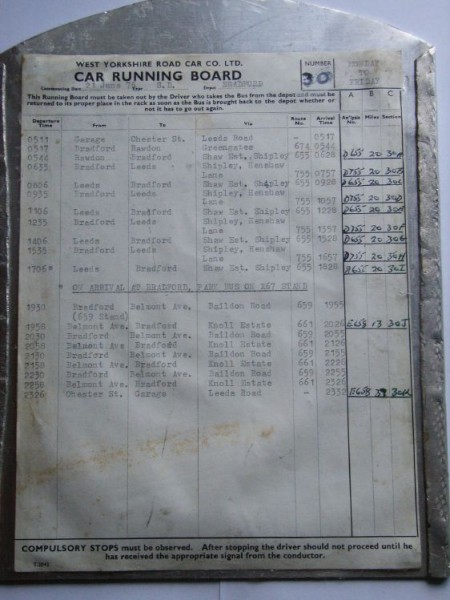 WEST YORKSHIRE ROAD CAR CO. LTD.
CAR RUNNING BOARD
NUMBER 30
MONDAY TO FRIDAY
Commencing Date 21 June Year Depot BRADFORD
This Running Board must be taken out by the Driver who takes the Bus from the depot and must be
returned to its proper place in the rack as soon as the Bus is brought back to the depot whether or
not it has to go out again.
A B C
Departure Time From To Via Route No. Arrival Time Miles Section
0511 Garage Chester St. Leeds Road - 0517
0517 Bradford Rawdon Greengates 674 0544
Rawdon Bradford Shaw Est., Shipley 655 0628 20
0635 Bradford Leeds Shipley, Henshaw
Lane 755 0757 20
0806 Leeds Bradford Shaw Est., Shipley 655 0928 20
0935 Bradford Leeds Shipley, Henshaw
Lane 755 1057 20 30D
1106 Leeds Bradford Shaw Est., Shipley 655 1228 20
1235 Bradford Leeds Shipley, Henshaw
Lane 755 1357 20 30F
1406 Leeds Bradford Shaw Est., Shipley 655 1528 20 30G
1535 Bradford Leeds Shipley, Henshaw
Lane 755 1657 20 30H
1706* Leeds Bradford Shaw Est., Shipley 655 1828 20 30I
* ON ARRIVAL AT BRADFORD, PARK BUS ON X67 STAND
1930 Bradford Belmont Ave. Baildon Road 655 1955
(659 Stand)
1958 Belmont Ave. Bradford Knoll Estate 661 2026 13 30J
2030 Bradford Belmont Ave. Baildon Road 659 2055
2058 Belmont Ave Bradford Knoll Estate 661 2126
2130 Bradford Belmont Ave. Baildon Road 659 2155
2158 Belmont Ave. Bradford Knoll Estate 661 2226
2230 Bradford Belmont Ave. Baildon Road 659 2255
2258 Belmont Ave. Bradford Knoll Estate 661 2326
2326 Chester St. Garage Leeds Road - 2332
COMPULSORY STOPS must be observed. After stopping the driver should not proceed until he
has received the appropriate signal from the conductor.